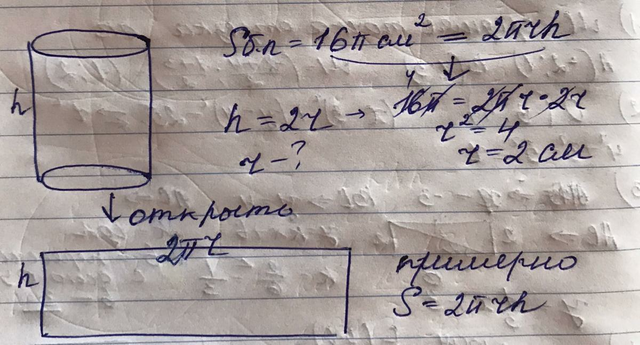 Sб.п = 16π см² = 2πrh
h
4
h = 2r → 16π = 2πr · 2r
r² = 4
r – ?
r = 2 см
↓ открыть
2πr
h
примерно
S = 2πrh